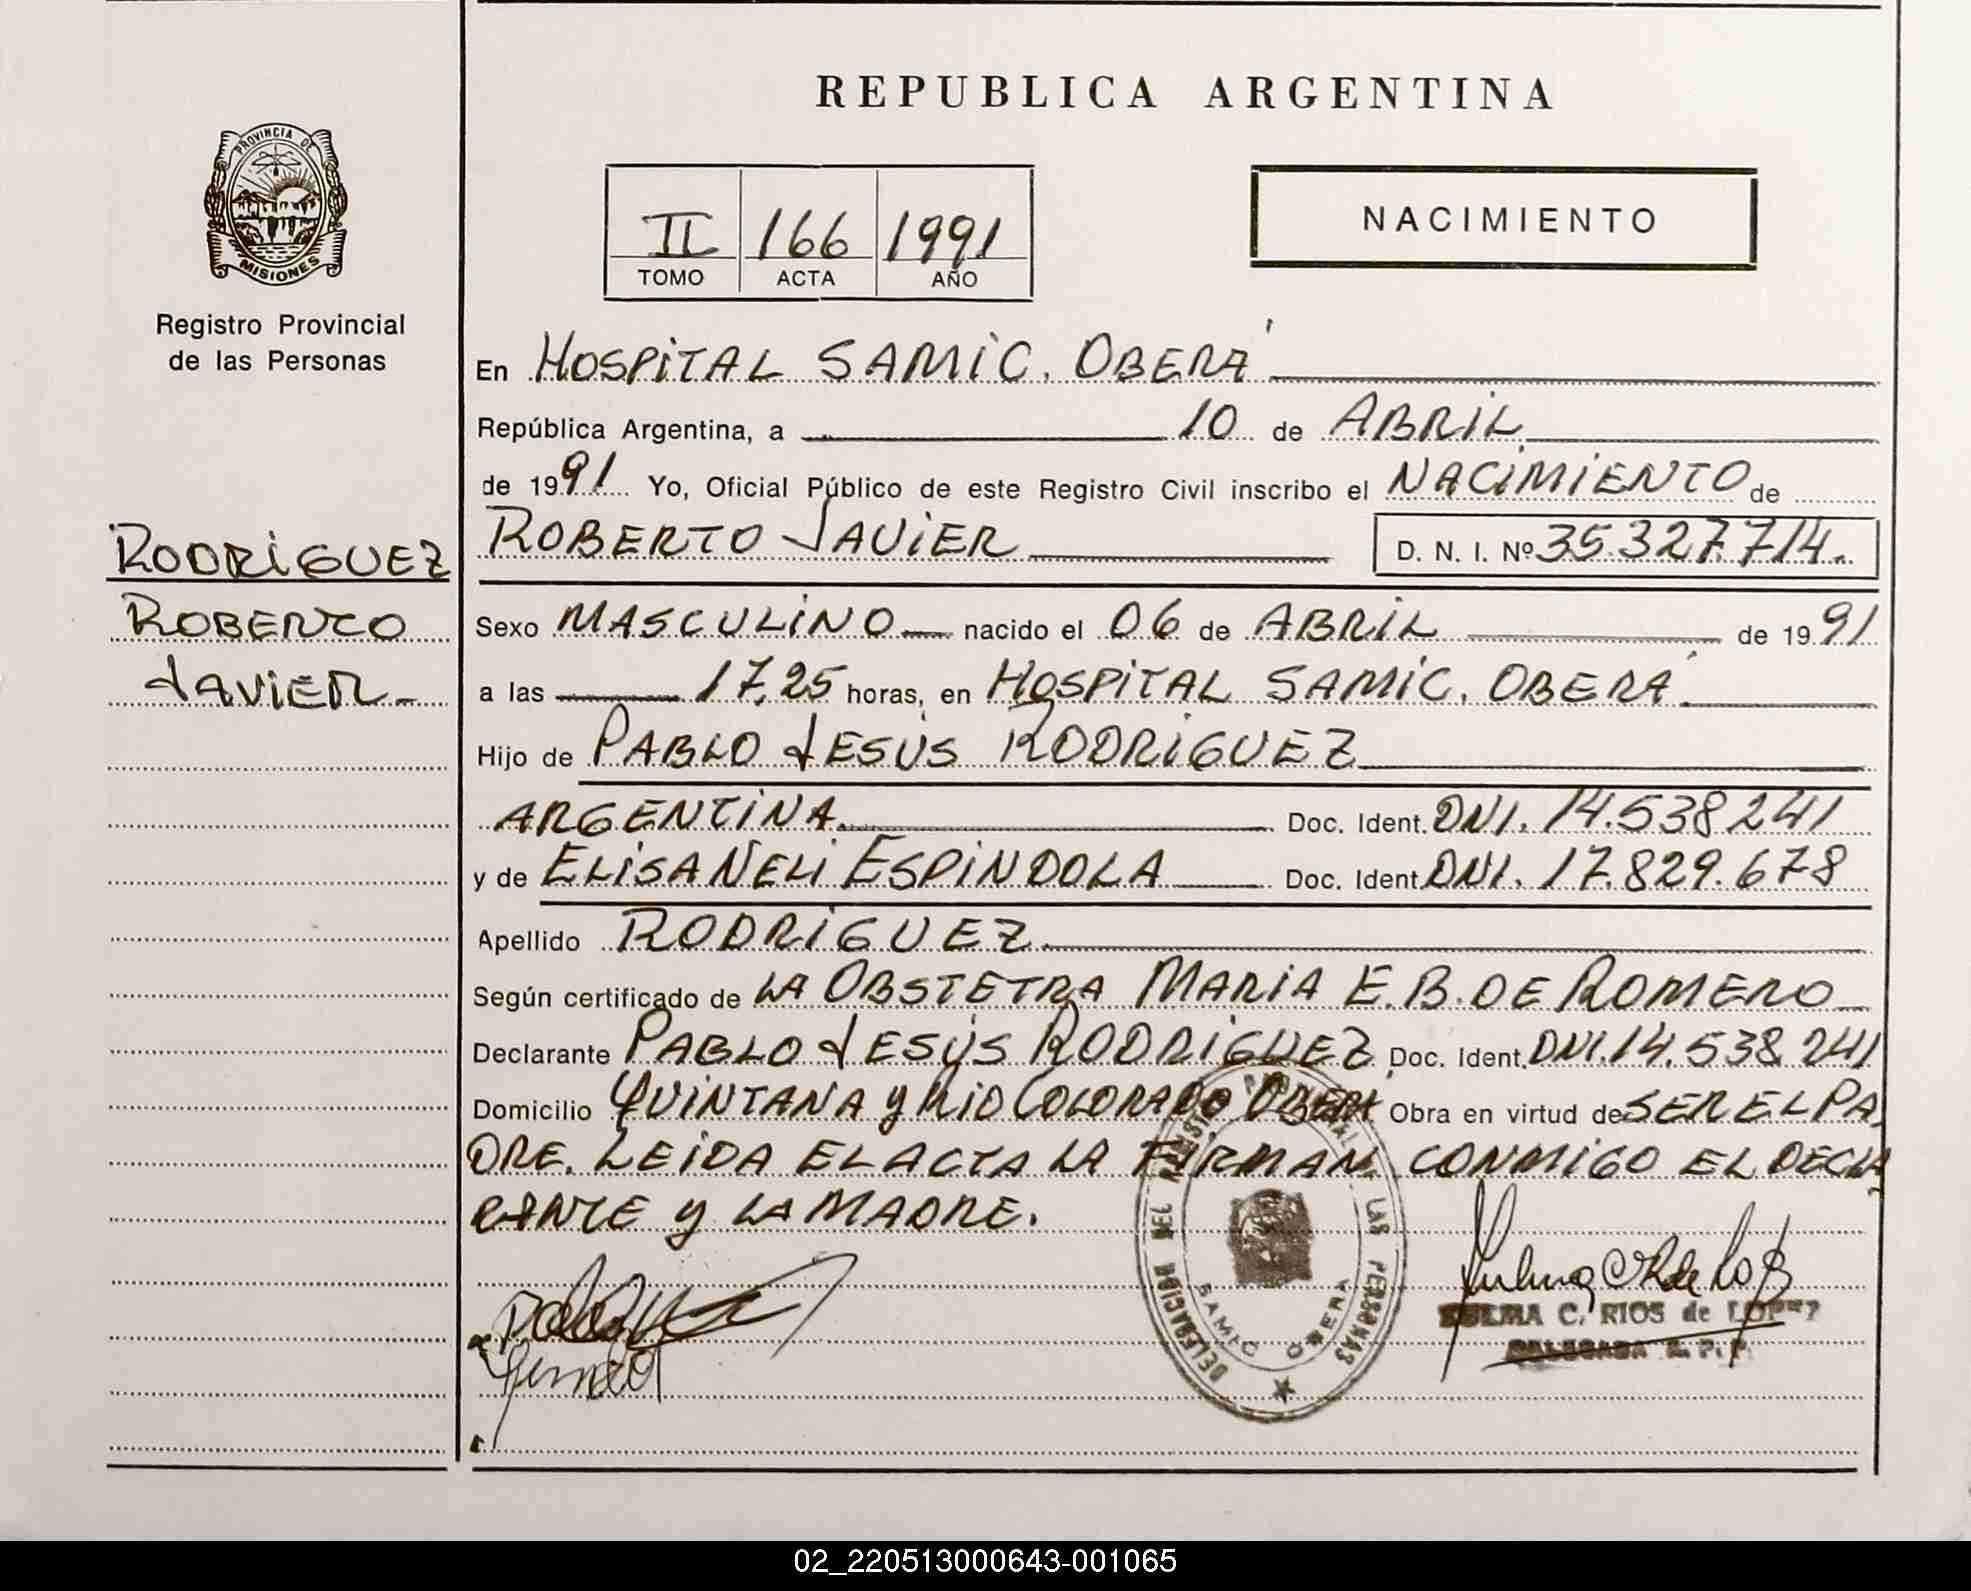 REPUBLICA ARGENTINA
PROVINCIA DE
MISIONES
Registro Provincial
de las Personas
II 166 1991
TOMO ACTA AÑO
NACIMIENTO
En HOSPITAL SAMIC. OBERÁ
República Argentina, a 10 de ABRIL
de 1991 Yo, Oficial Público de este Registro Civil inscribo el NACIMIENTO de
ROBERTO JAVIER D. N. I. Nº 35.327.714.
RODRIGUEZ
ROBERTO
JAVIER
Sexo MASCULINO nacido el 06 de ABRIL de 1991
a las 17,25 horas, en HOSPITAL SAMIC. OBERÁ
Hijo de PABLO JESÚS RODRIGUEZ
ARGENTINA Doc. Ident. DNI. 14.538.241
y de ELISA NELI ESPINDOLA Doc. Ident. DNI. 17.829.678
Apellido RODRIGUEZ
Según certificado de LA OBSTETRA MARIA E. B. DE ROMERO
Declarante PABLO JESÚS RODRIGUEZ Doc. Ident. DNI. 14.538.241
Domicilio QUINTANA y RIO COLORADO OBERÁ Obra en virtud de SER EL PA
DRE. LEIDA EL ACTA LA FIRMAN CONMIGO EL DECLA
RANTE y LA MADRE.
DELEGACION DEL REGISTRO PROVINCIAL DE LAS PERSONAS
SAMIC OBERA
ZULMA C. RIOS de LOPEZ
DELEGADA R. P. P.
02_220513000643-001065